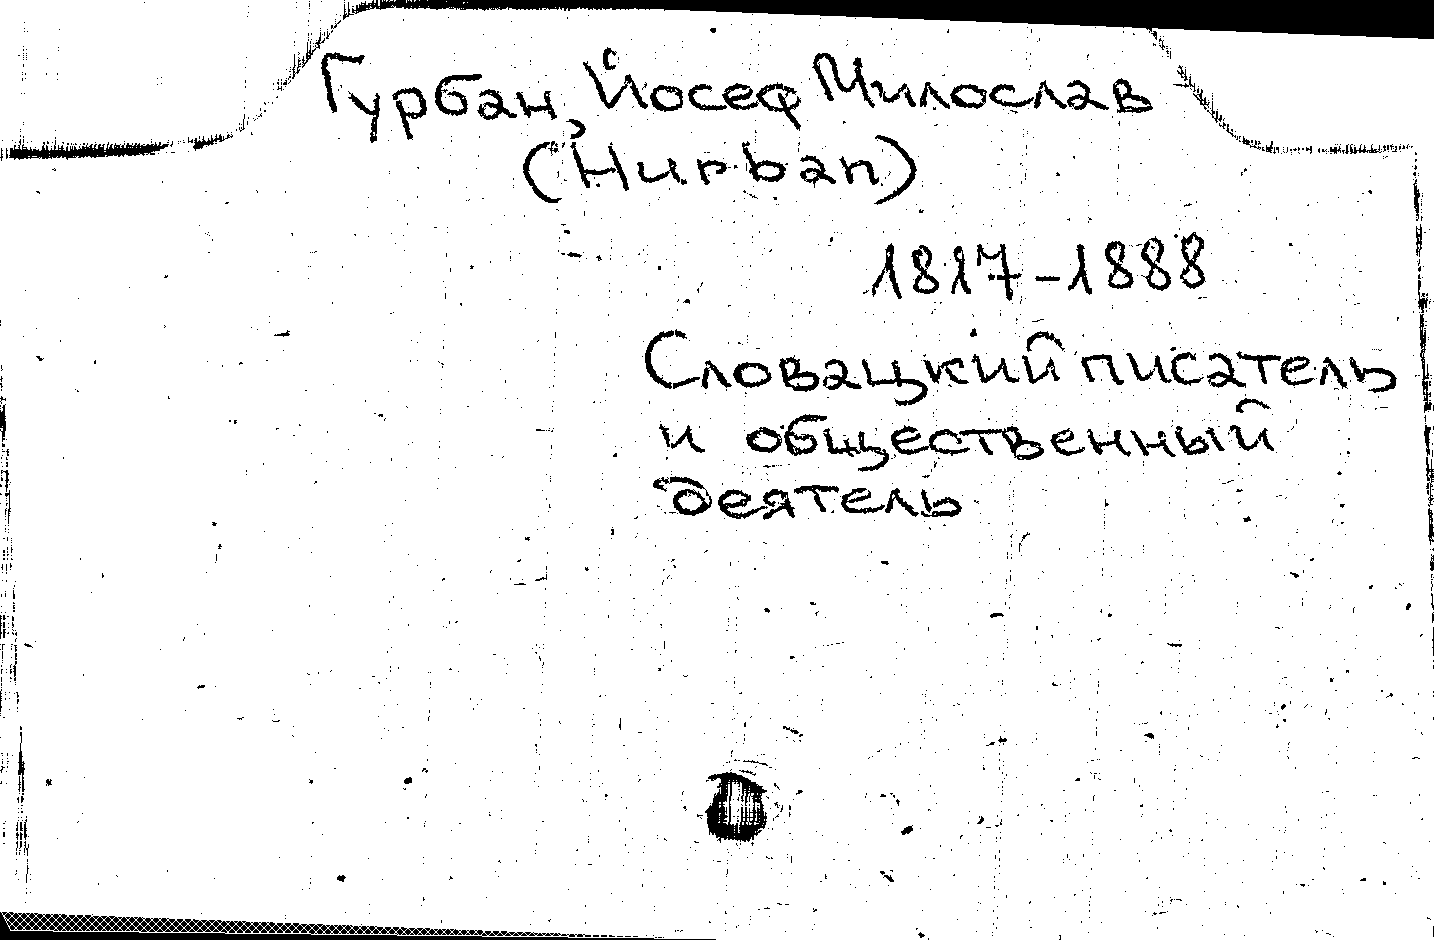 Гурбан, Йосеф Милослав
(Hurban)
1817-1888
Словацкий писатель
и общественный
деятель